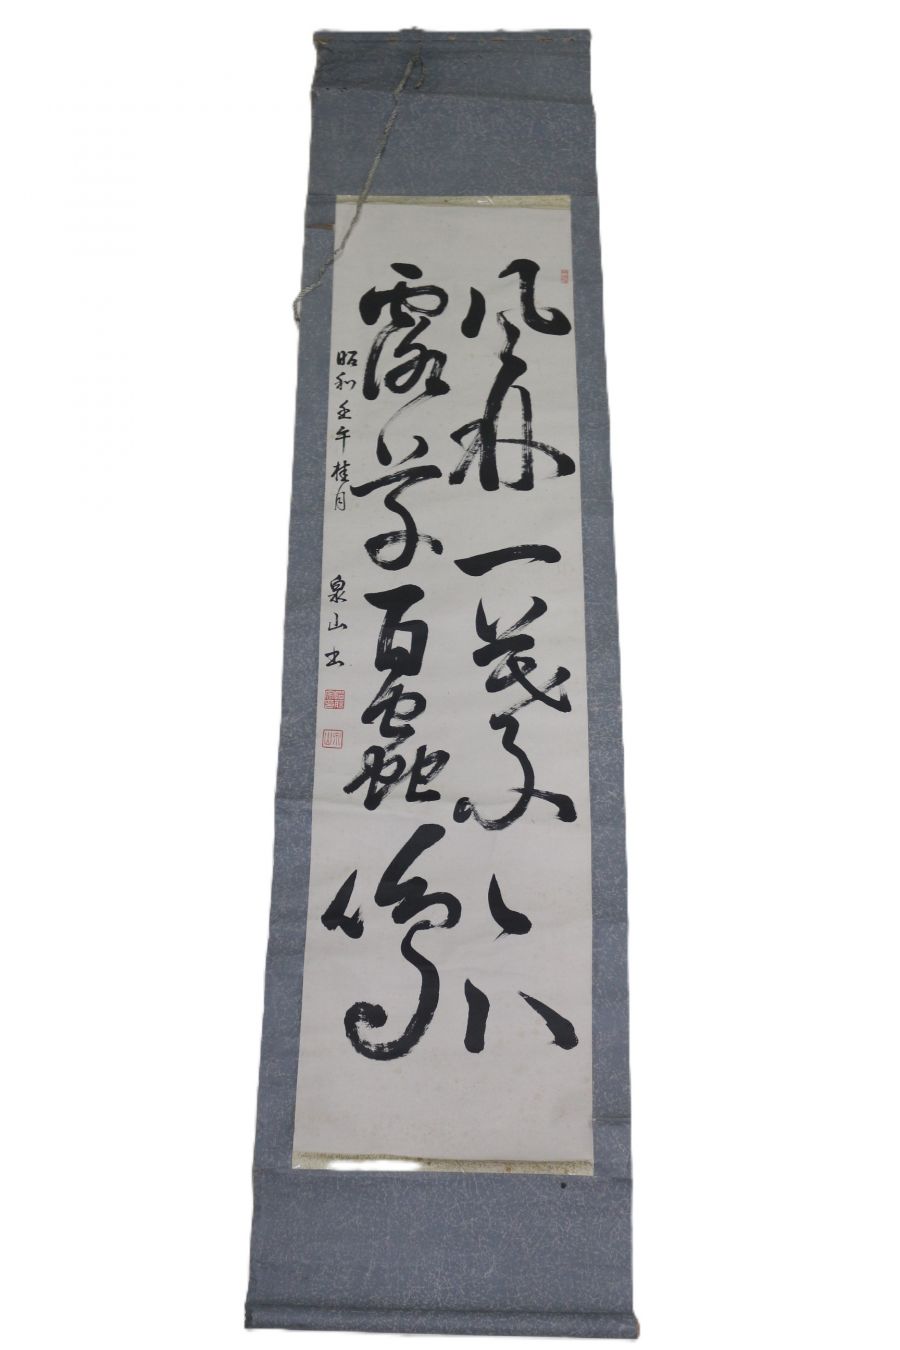 風林一葉下
露草百蟲鳴
昭和壬午桂月
泉山書